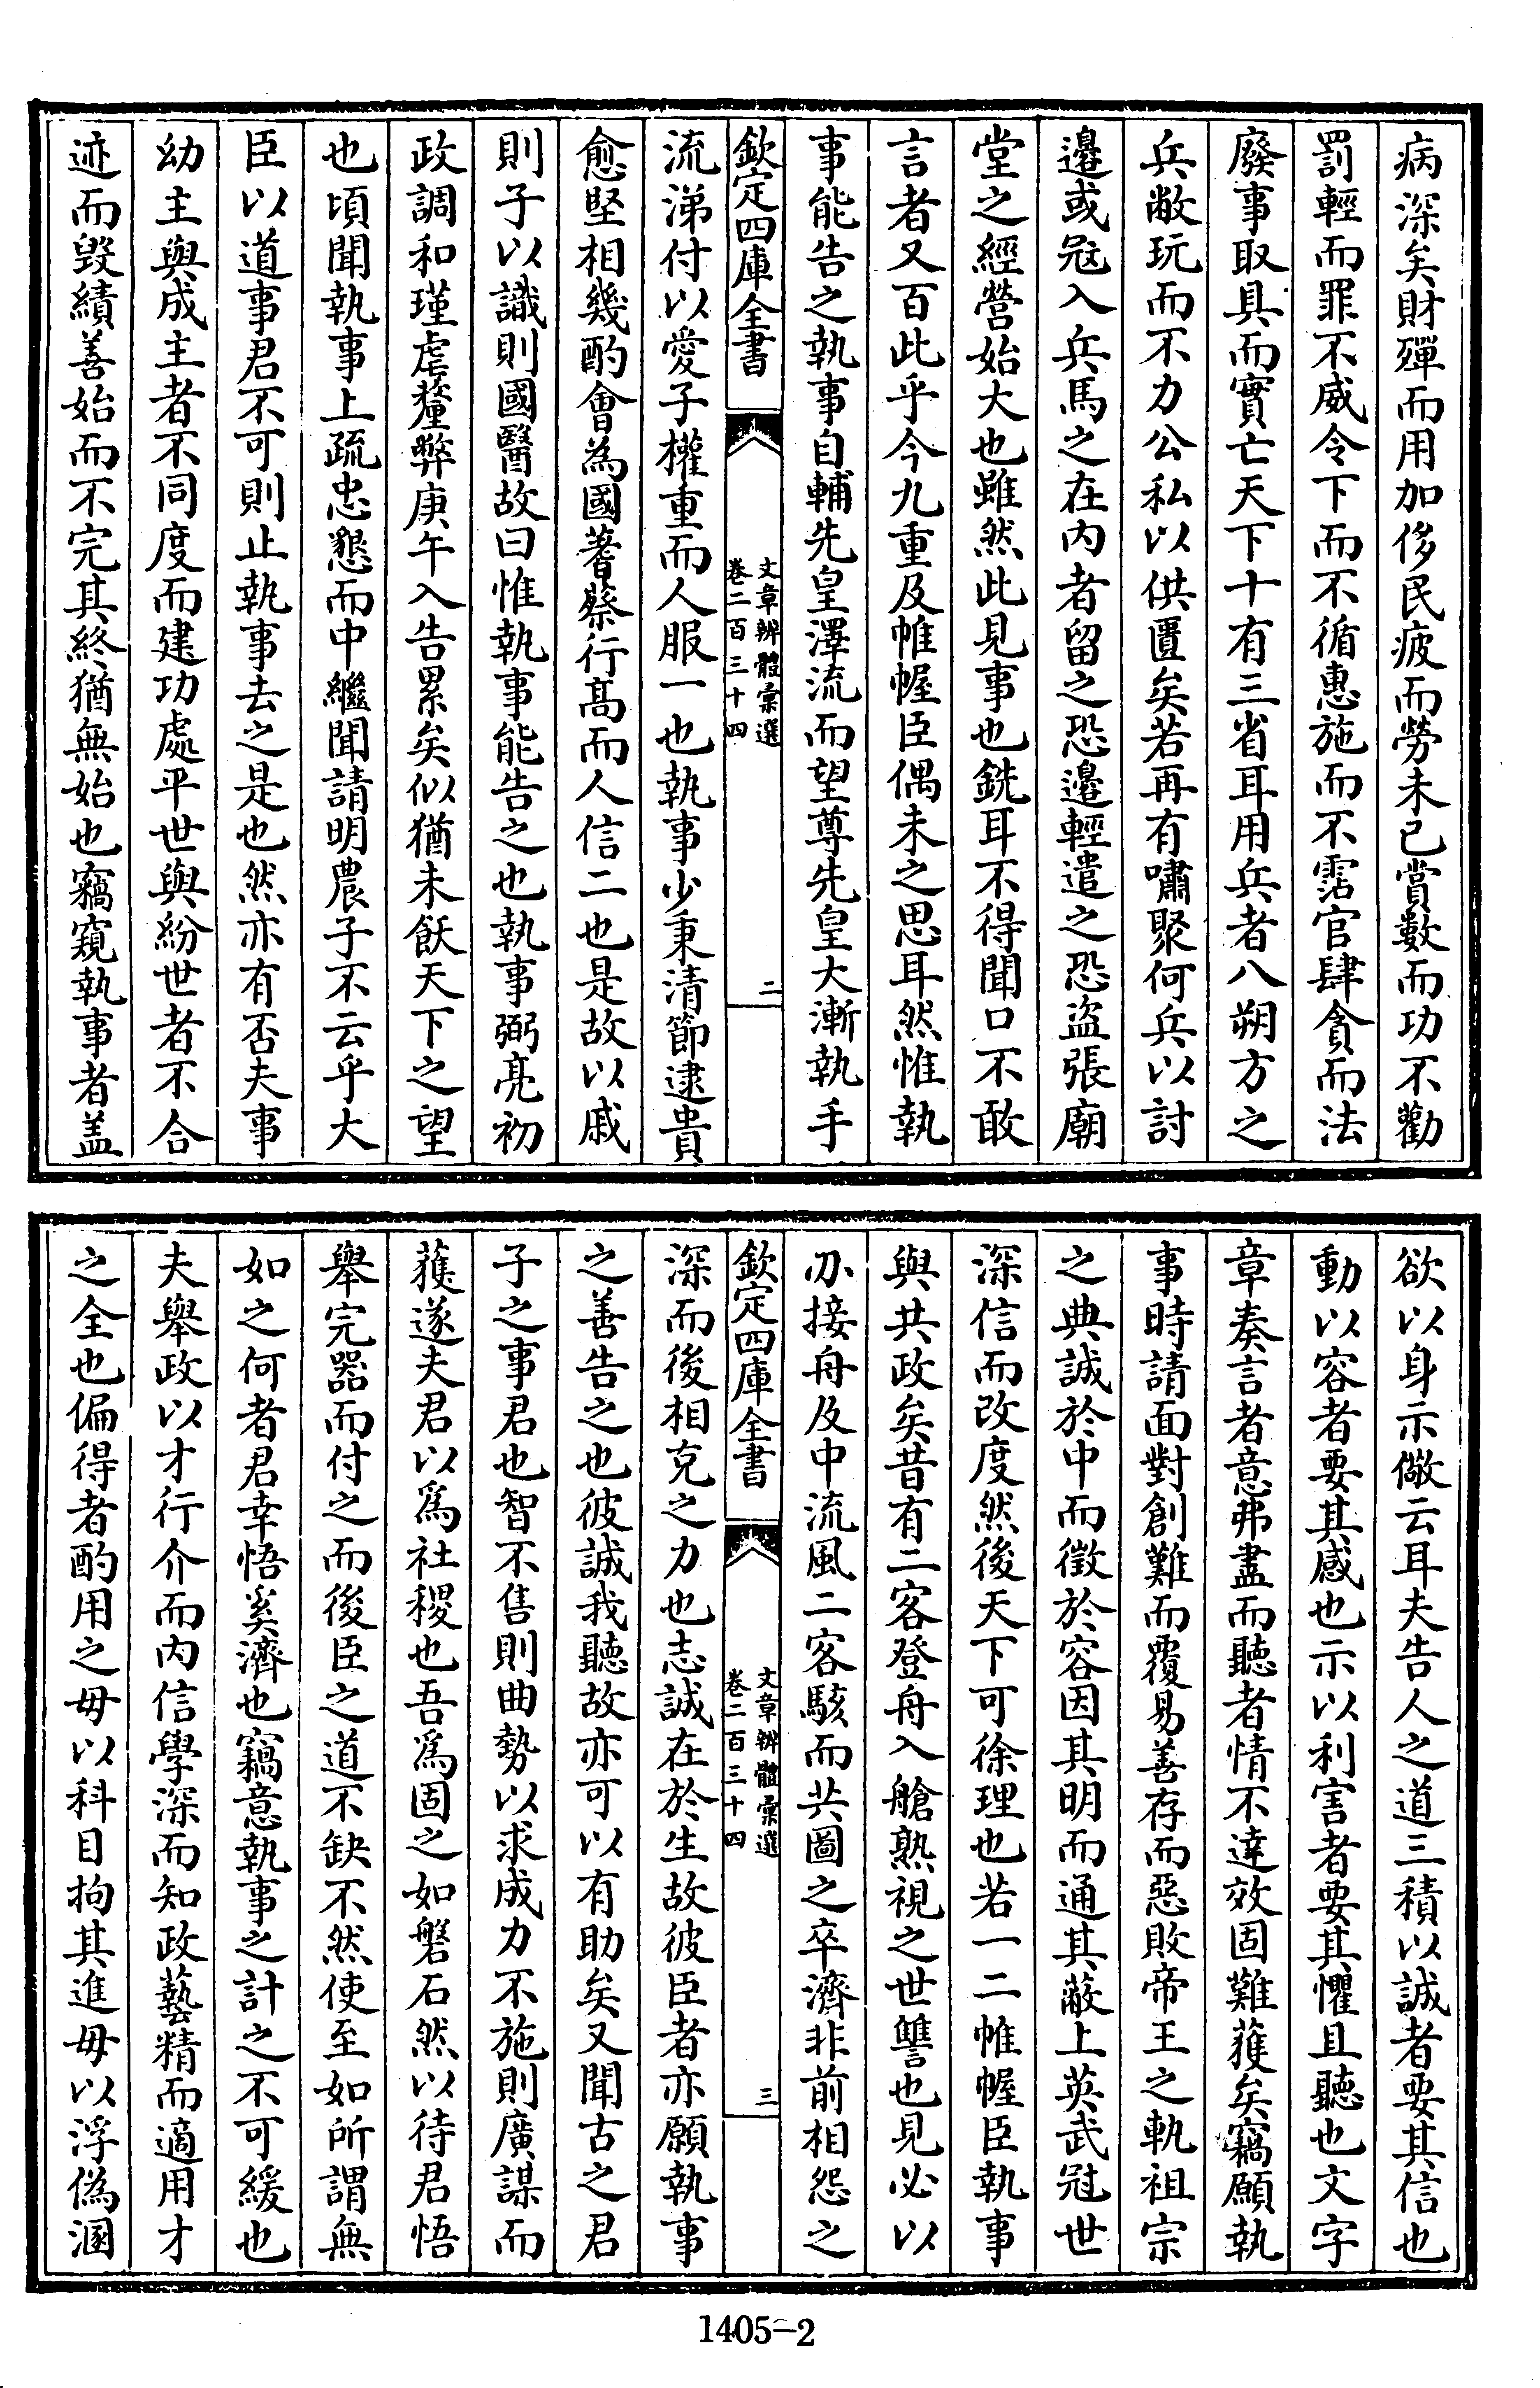 病深矣財殫而用加侈民疲而勞未已賞數而功不勸
罰輕而罪不威令下而不循惠施而不霑官肆貪而法
廢事取具而實亡天下十有三省耳用兵者八朔方之
兵敝玩而不力公私以供匱矣若再有嘯聚何兵以討
邊或冦入兵馬之在内者留之恐邊輕遣之恐盜張廟
堂之經營始大也雖然此見事也銑耳不得聞口不敢
言者又百此乎今九重及帷幄臣偶未之思耳然惟執
事能告之執事自輔先皇澤流而望尊先皇大漸執手
欽定四庫全書
文章辨體彙選
卷二百三十四
二
流涕付以愛子權重而人服一也執事少秉清節逮貴
愈堅相幾酌會為國蓍蔡行髙而人信二也是故以戚
則子以識則國醫故曰惟執事能告之也執事弼亮初
政調和瑾虐釐弊庚午入告累矣似猶未飫天下之望
也頃聞執事上疏忠懇而中繼聞請明農子不云乎大
臣以道事君不可則止執事去之是也然亦有否夫事
幼主與成主者不同度而建功處平世與紛世者不合
迹而毁績善始而不完其終猶無始也竊窺執事者盖
欲以身示儆云耳夫告人之道三積以誠者要其信也
動以容者要其感也示以利害者要其懼且聽也文字
章奏言者意弗盡而聽者情不達效固難獲矣竊願執
事時請面對創難而覆易善存而惡敗帝王之軌祖宗
之典誠於中而徵於容因其明而通其蔽上英武冠世
深信而改度然後天下可徐理也若一二帷幄臣執事
與共政矣昔有二客登舟入艙熟視之世讐也見必以
刃接舟及中流風二客駭而共圖之卒濟非前相怨之
欽定四庫全書
文章辨體彙選
卷二百三十四
三
深而後相克之力也志誠在於生故彼臣者亦願執事
之善告之也彼誠我聽故亦可以有助矣又聞古之君
子之事君也智不售則曲勢以求成力不施則廣謀而
獲遂夫君以爲社稷也吾爲固之如磐石然以待君悟
舉完器而付之而後臣之道不缺不然使至如所謂無
如之何者君幸悟奚濟也竊意執事之計之不可緩也
夫舉政以才行介而内信學深而知政藝精而適用才
之全也偏得者酌用之毋以科目拘其進毋以浮偽溷
1405-2